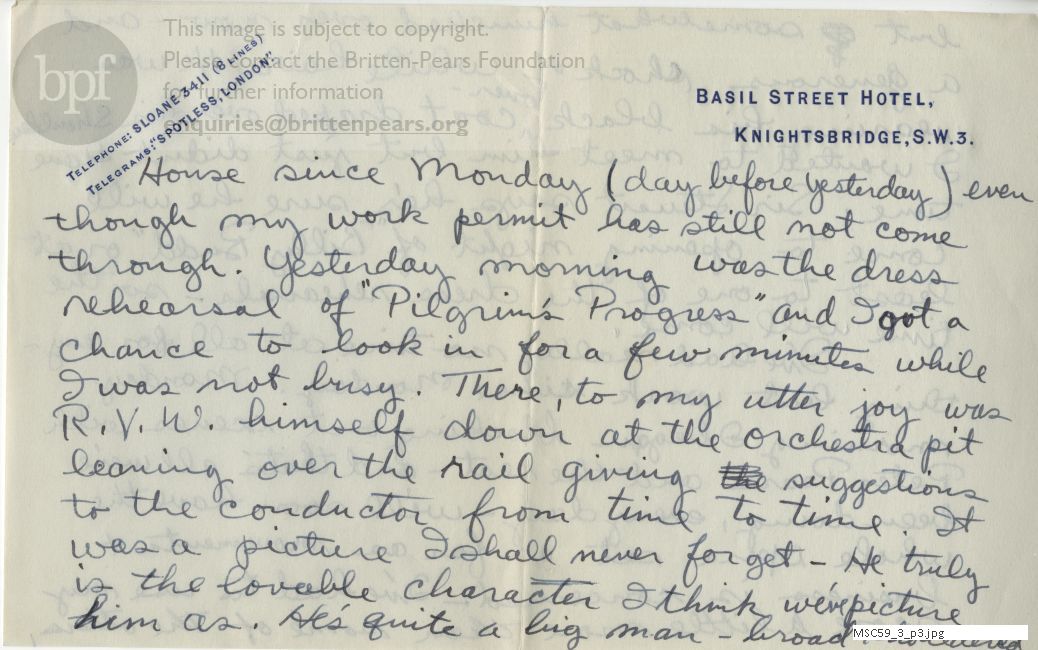 This image is subject to copyright.
Please contact the Britten-Pears Foundation
for further information
enquiries@brittenpears.org
bpf
TELEPHONE: SLOANE 3411 (8 LINES)
TELEGRAMS: "SPOTLESS, LONDON"
BASIL STREET HOTEL,
KNIGHTSBRIDGE, S.W.3.
House since Monday (day before yesterday) even
though my work permit has still not come
through. Yesterday morning was the dress
rehearsal of "Pilgrim's Progress" and I got a
chance to look in for a few minutes while
I was not busy. There, to my utter joy was
R.V.W. himself down at the orchestra pit
leaning over the rail giving the suggestions
to the conductor from time to time. It
was a picture I shall never forget - He truly
is the lovable character I think we've picture
him as. He's quite a big man - broad
MSC59_3_p3.jpg